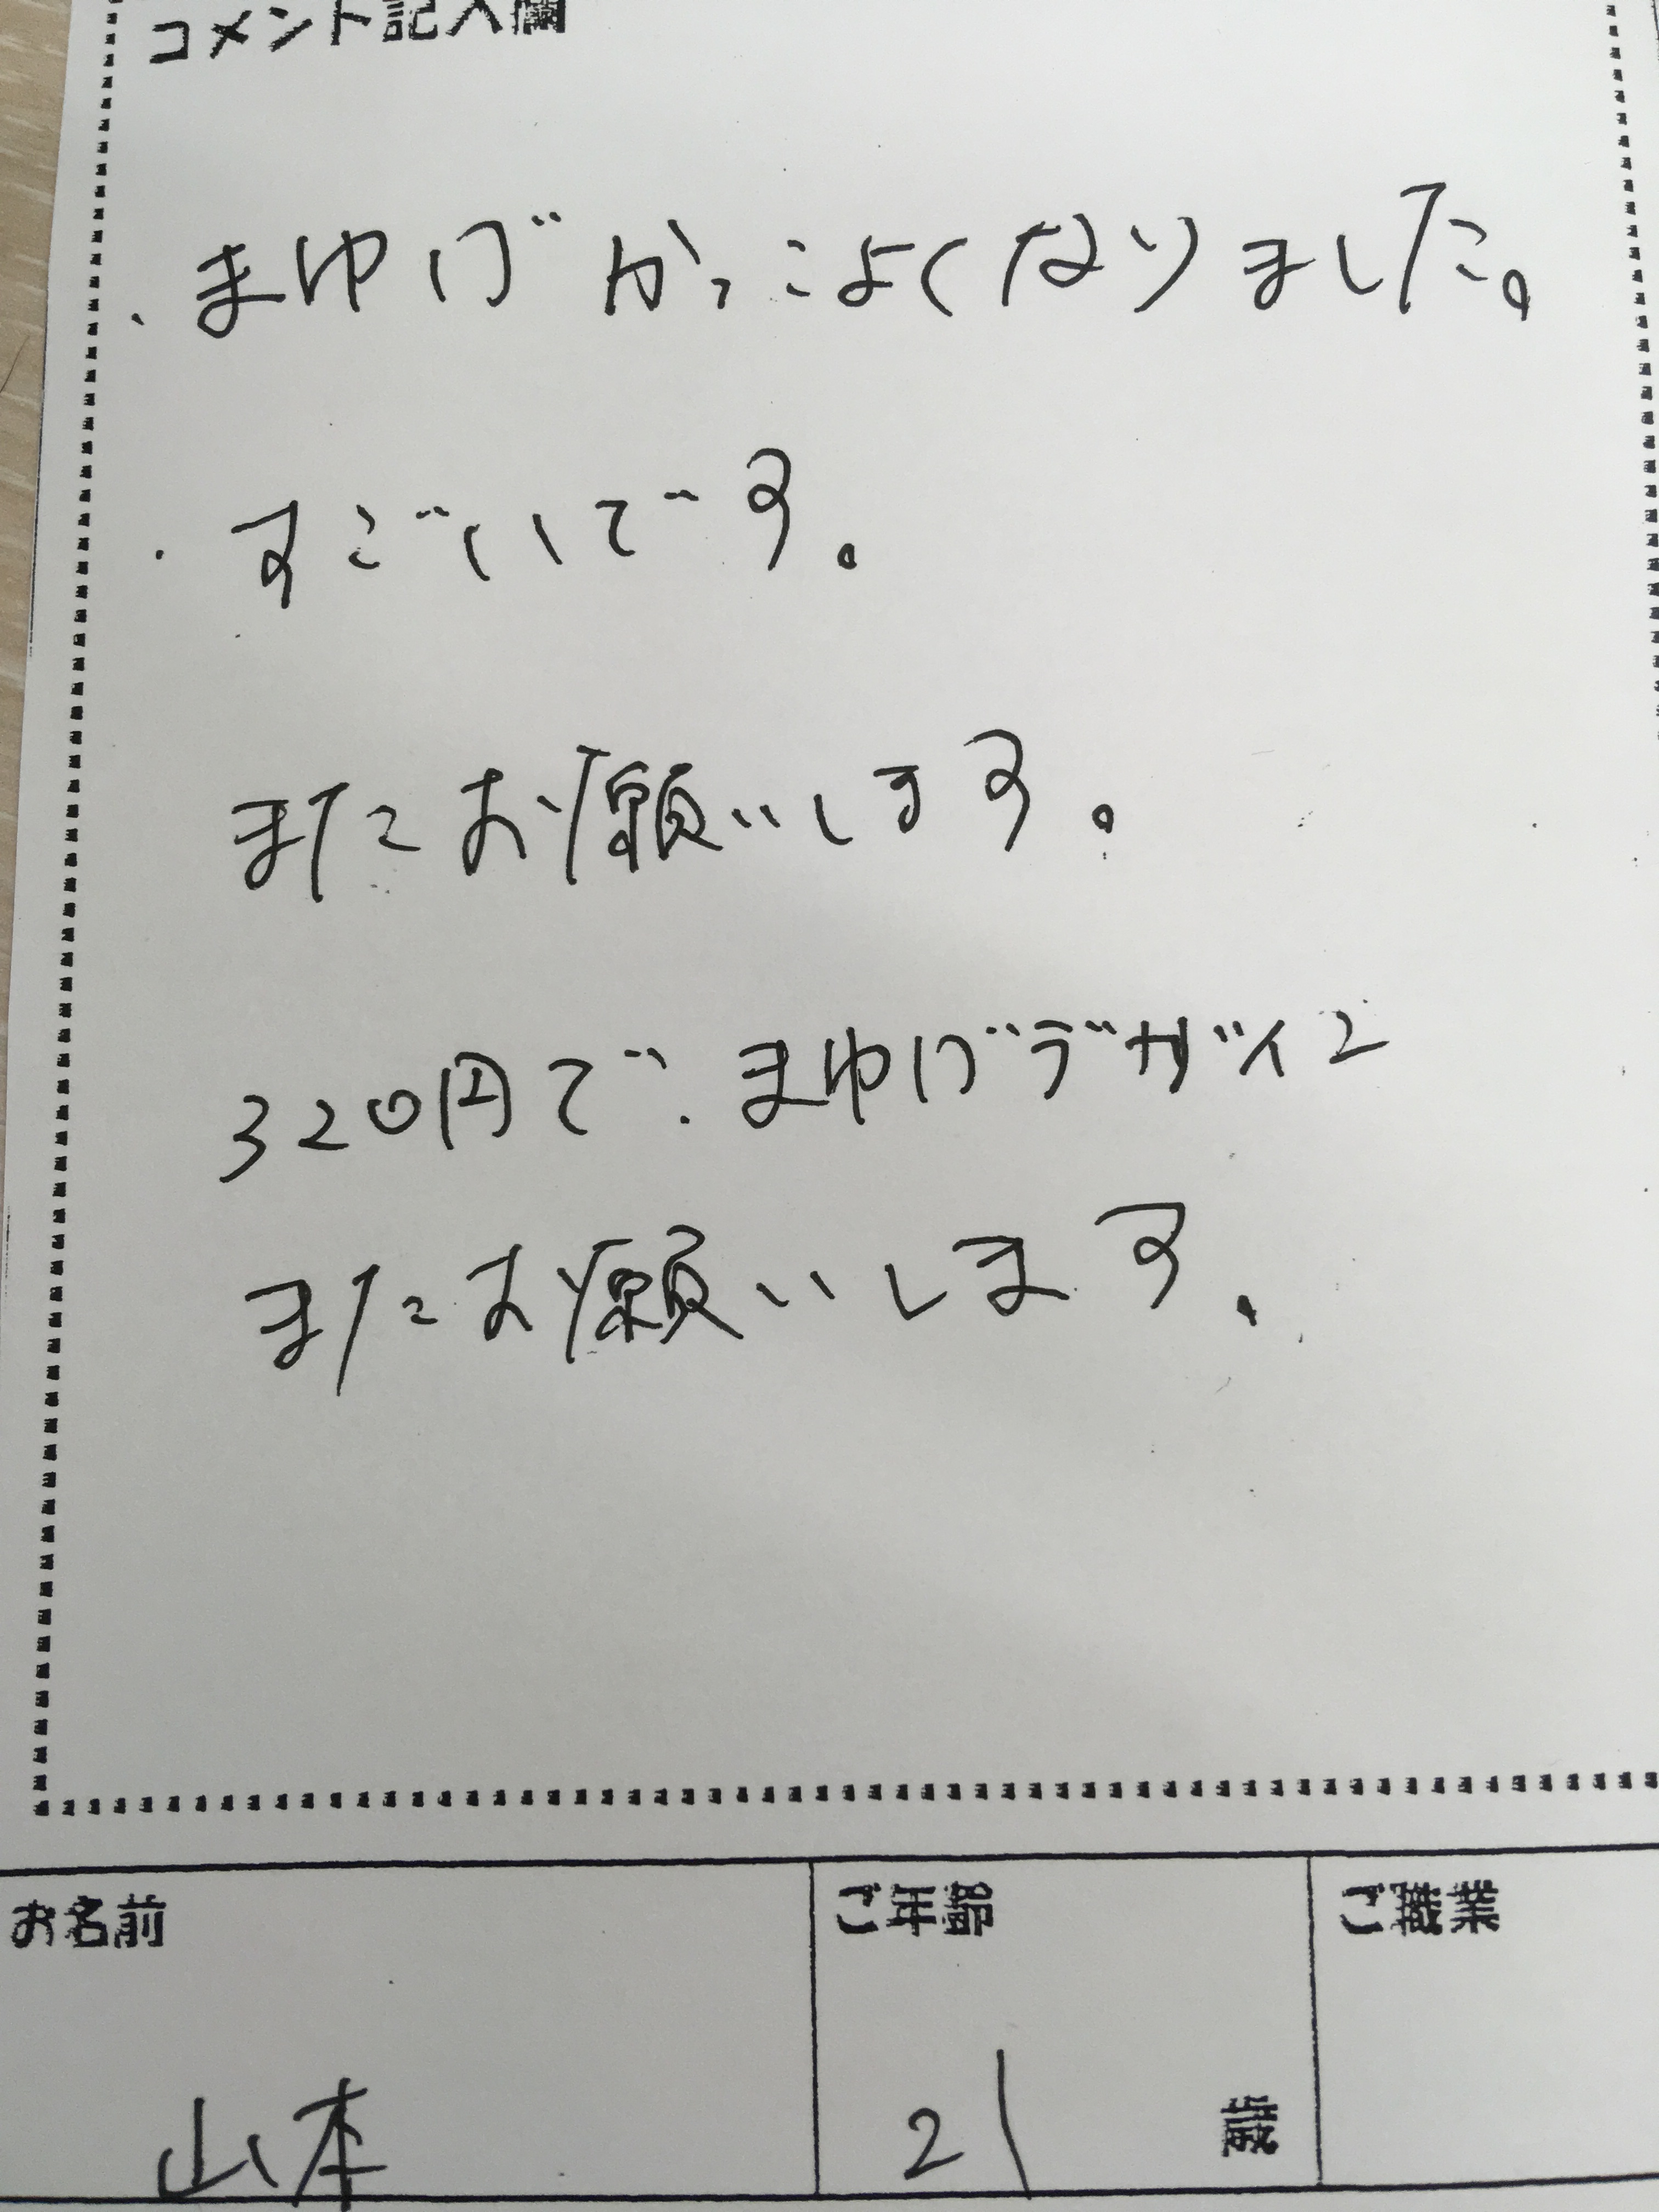 コメント記入欄
・まゆげかっこよくなりました。
・すごいです。
またお願いします。
320円で、まゆげデザイン
またお願いします。
お名前 ご年齢 ご職業
山本 21 歳